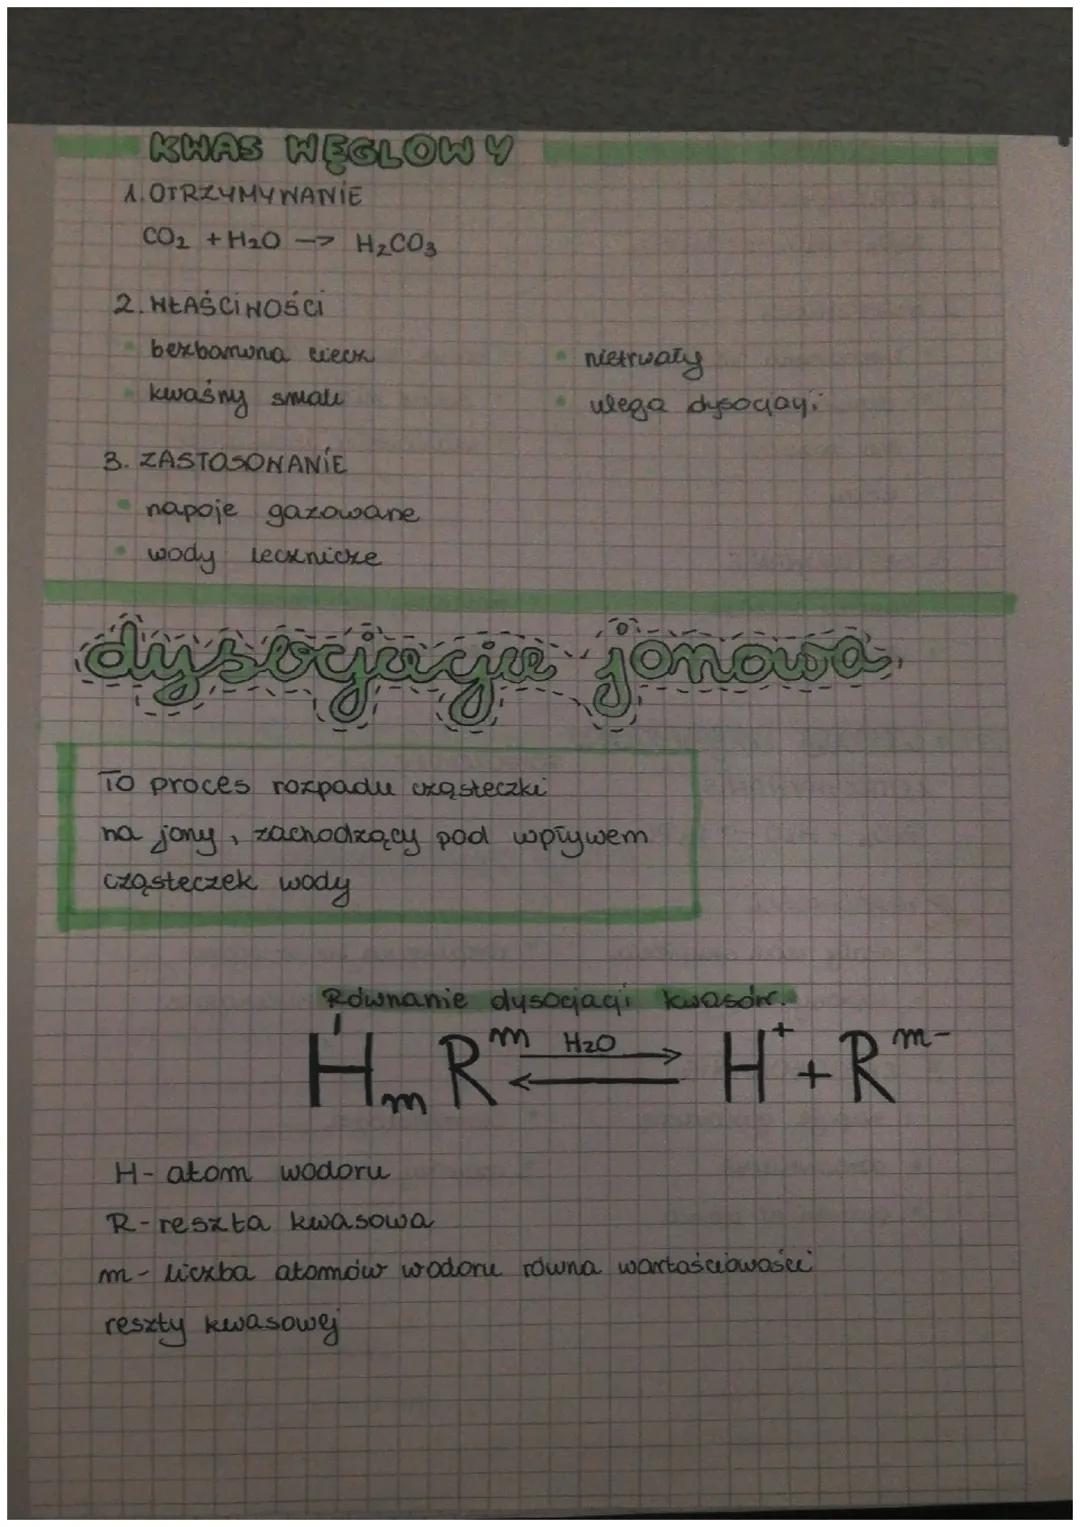 KWAS WĘGLOWY
1. OTRZYMYWANIE
CO₂ + H₂O --> H₂CO₃
2. WŁAŚCIWOŚCI
• bezbarwna ciecz
• nietrwały
• kwaśny smak
• ulega dysocjacji
3. ZASTOSOWANIE
• napoje gazowane
• wody lecznicze
dysocjacja jonowa
To proces rozpadu cząsteczki
na jony, zachodzący pod wpływem
cząsteczek wody
Równanie dysocjacji kwasów.
I m H₂O
HₘR ⇄ H⁺ + Rᵐ⁻
H- atom wodoru
R- reszta kwasowa
m- liczba atomów wodoru równa wartościowości
reszty kwasowej